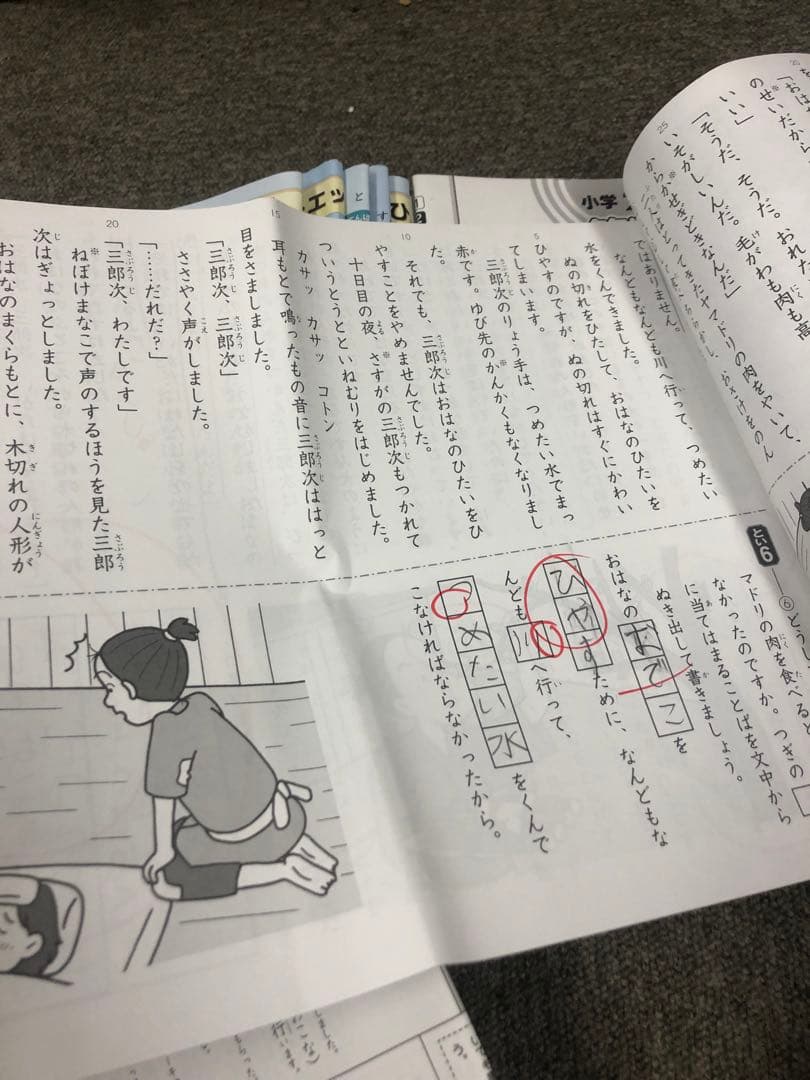 小学
いい」
「そうだ、そうだ。おれ
いそがしいんだ。毛がわも肉も高
からがせぎどきなんだ」
ヤマドリの肉をやいて、
おさけをのん
ではありません。
なんともなんとも川へ行って、つめたい
水をくんできました。
ぬの切れをひたして、おはなのひたいを
ひやすのですが、ぬの切れはすぐにかわい
てしまいます。
三郎次のりょう手は、つめたい水でまっ
赤です。ゆび先のかんかくもなくなりまし
た。
それでも、三郎次はおはなのひたいをひ
やすことをやめませんでした。
十日目の夜、さすがの三郎次もつかれて
ついうとうとといねむりをはじめました。
カサッ カサッ コトン
耳もとで鳴ったもの音に三郎次ははっと
目をさましました。
「三郎次、三郎次」
ささやく声がしました。
「……だれだ?」
「三郎次、わたしです」
ねぼけまなこで声のするほうを見た三郎
次はぎょっとしました。
おはなのまくらもとに、木切れの人形が
とい6
⑥どうし
マドリの肉を食べると
なかったのですか。つぎの
に当てはまることばを文中から
ぬき出して書きましょう。
おはなのおでこを
ひやすために、なんどもな
んども川へ行って、
つめたい水をくんで
こなければならなかったから。